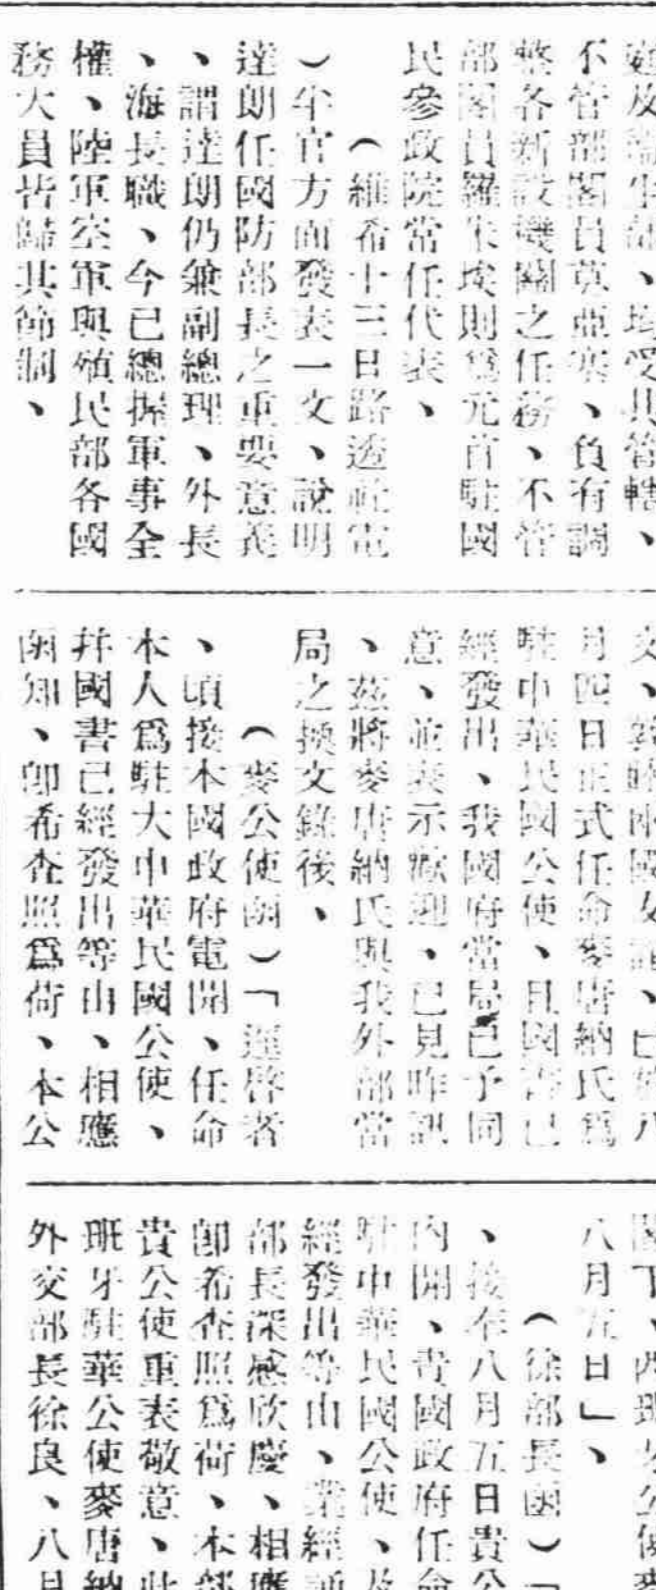 庭及衞生部、均受其管轄、
不管部閣員莫亞塞、負有調
整各新設機關之任務、不管
部閣員羅米埃則爲元首駐國
民參政院常任代表、
（維希十三日路透社電
）半官方面發表一文、說明
達朗任國防部長之重要意義
、謂達朗仍兼副總理、外長
、海長職、今已總握軍事全
權、陸軍空軍與殖民部各國
務大員皆歸其節制、
文、敦睦兩國友誼、已於八
月四日正式任命麥唐納氏爲
駐中華民國公使、且國書已
經發出、我國府當局已予同
意、並表示歡迎、已見昨訊
、茲將麥唐納氏與我外部當
局之換文錄後、
（麥公使函）「逕啓者
、頃接本國政府電開、任命
本人爲駐大中華民國公使、
幷國書已經發出等由、相應
函知、卽希查照爲荷、本公
閣下、西班牙公使麥
八月五日」、
（徐部長函）「
、接在八月五日貴公
內開、貴國政府任命
駐中華民國公使、及
經發出等由、業經
部長深感欣慶、相應
卽希查照爲荷、本部
貴公使重表敬意、此
班牙駐華公使麥唐納
外交部長徐良、八月